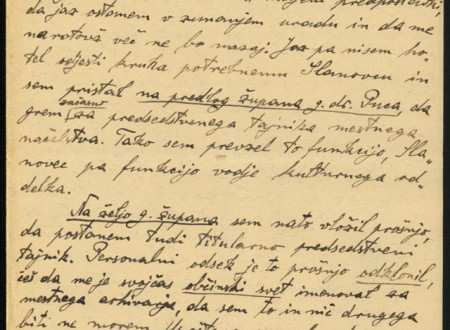 da jaz ostanem v zunanjem uradu in da me
na rotovž več ne bo nazaj. Jaz pa nisem ho-
tel odjesti kruha potrebnemu Slanovcu in
sem pristal na predlog župana g. dr. Puca, da
začasno
grem za predsedstvenega tajnika mestnega
načelstva. Tako sem prevzel to funkcijo, Sla-
novec pa funkcijo vodje kulturnega od-
delka.
Na željo g. župana sem nato vložil prošnjo,
da postanem tudi titularno predsedstveni
tajnik. Personalni odsek je to prošnjo odklonil,
češ da me je svojčas občinski svet imenoval za
mestnega arhivarja, da sem to in nič drugega
biti ne morem